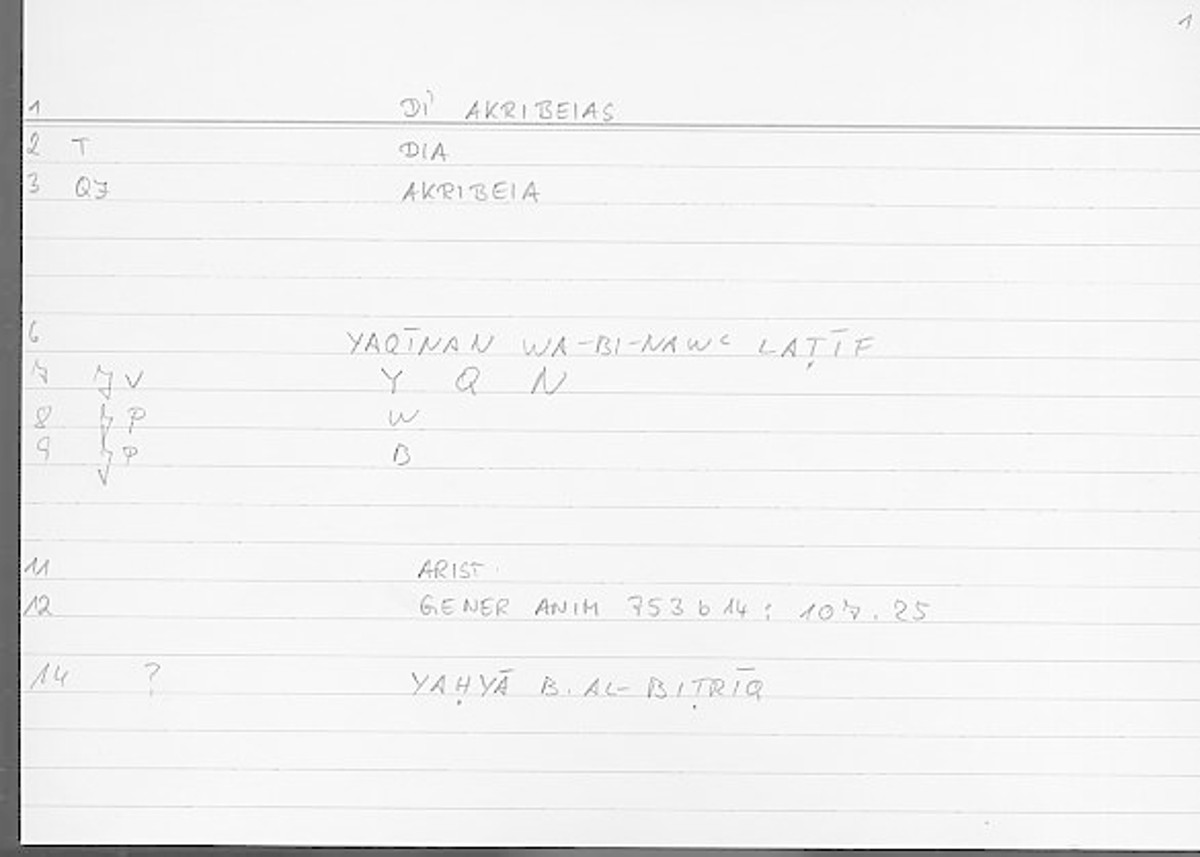 1
1 DI' AKRIBEIAS
2 T DIA
3 QJ AKRIBEIA
6 YAQĪNAN WA-BI-NAWC LAṬĪF
7 V Y Q N
8 P W
9 P B
11 ARIST.
12 GENER ANIM 753 b 14 : 107.25
14 ? YAḤYĀ B. AL-BIṬRĪQ